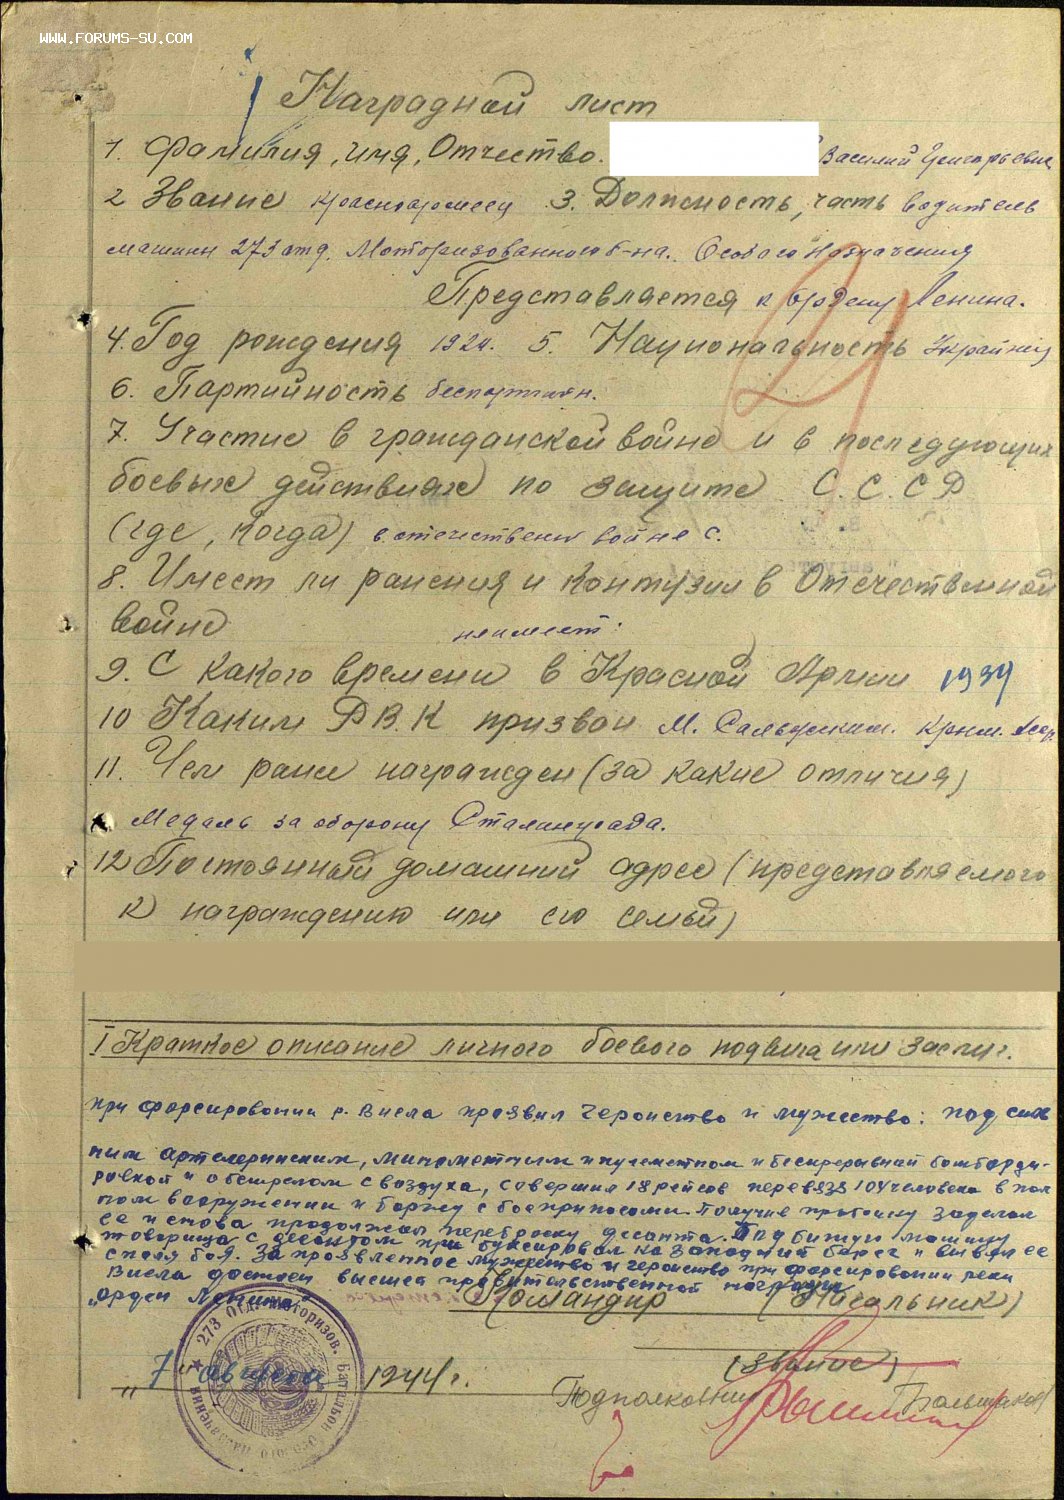 WWW.FORUMS-SU.COM
Наградной лист
1. Фамилия, имя, Отчество. Василий Григорьевич
2 Звание красноармеец 3. Должность, часть водитель
машины 273 отд. Моторизованного б-на. Особого Назначения
Представляется к Ордену Ленина.
4. Год рождения 1924. 5. Национальность Украинец
6. Партийность беспартийн.
7. Участие в гражданской войне и в последующих
боевых действиях по защите С.С.С.Р
(где, когда) в отечественн войне с.
8. Имеет ли ранения и контузии в Отечественной
войне неимеет:
9. С какого времени в Красной Армии
10 Каким Р.В.К призван М. Крым. Асср.
11. Чем ранее награжден (за какие отличия)
Медаль за оборону Сталинграда.
12 Постоянный домашний адрес (представляемого
к награждению или его семьи)
I Краткое описание личного боевого подвига или заслуг.
при форсировании р. Висла проявил героиство и мужество: под силь
ным артелерииским, минометным и пулеметном и беспрерывной бомбарди-
ровкой и обстрелом с воздуха, совершил 18 рейсов перевязя 104 человека в пол
ном вооружении и баржу с боеприпосами. Получив пробоину заделал
ее и снова продолжал переброску десанта. Подбитую машину
товарища с десантом при буксировал на западный берег и вывел ее
споля боя. За проявленное мужество и героиство при форсировании реки
Висла достоен высшеа правительственной награды
„Орден Ленина" Командир (Начальник)
273 Отд. Моторизов. Батальон Особого Назначения
„7" августа 1944 г.
(Звание)
Подполковник Большаков